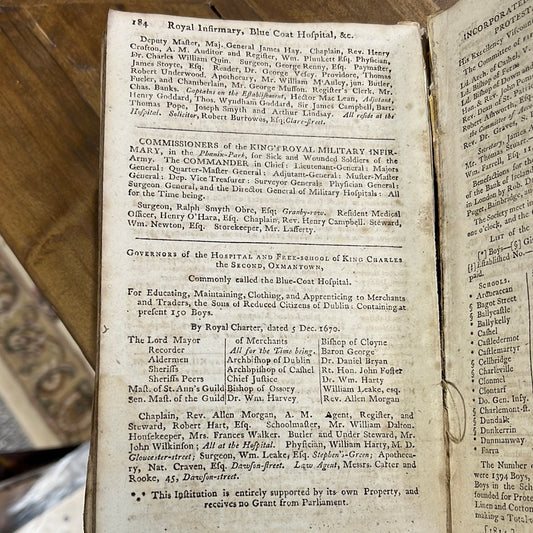 184 Royal Infirmary, Blue Coat Hospital, &c.
Deputy Master, Maj. General James Hay. Chaplain, Rev. Henry
Crofton, A. M. Auditor and Register, Wm. Plunkett Esq. Physician,
Dr. Charles William Quin. Surgeon, George Renny, Esq. Paymaster,
James Smyth, Esq. Reader, Dr. George Vesey. Providore, Thomas
Robert Underwood, Apothecary, Mr. William M'Auley, jun. Butler,
Fueler, and Chamberlain, Mr. George Musson. Register's Clerk, Mr.
Chas. Banks. Captains on the Establishment, Hector Mac Lean, Adjutant,
Henry Goddard, Thos. Wyndham Goddard, Sir James Campbell, Bart.
Thomas Pope, Joseph Smyth and Arthur Lindsay. All reside at the
Hospital. Solicitor, Robert Burrowes, Esq. Clare-street.
Commissioners of the KING's ROYAL MILITARY INFIR-
MARY, in the Phoenix-Park, for Sick and Wounded Soldiers of the
Army. The COMMANDER in Chief: Lieutenant-General: Majors
General: Quarter-Master General: Adjutant-General: Muster-Master
General: Dep. Vice Treasurer: Surveyor General: Physician General:
Surgeon General, and the Director General of Military Hospitals: All
for the Time being.
Surgeon, Ralph Smyth Obre, Esq: Granby-row. Resident Medical
Officer, Henry O'Hara, Esq. Chaplain, Rev. Henry Campbell. Steward,
Wm. Newton, Esq. Storekeeper, Mr. Lafferty.
Governors of the Hospital and Free-school of King Charles
the Second, Oxmantown,
Commonly called the Blue-Coat Hospital.
For Educating, Maintaining, Clothing, and Apprenticing to Merchants
and Traders, the Sons of Reduced Citizens of Dublin: Containing at
present 150 Boys.
By Royal Charter, dated 5 Dec. 1670.
The Lord Mayor of Merchants Bishop of Cloyne
Recorder All for the Time being. Baron George
Aldermen Archbishop of Dublin Dr. Daniel Bryan
Sheriffs Archbishop of Cashel Rt. Hon. John Foster
Sheriffs Peers Chief Justice Dr. Wm. Harty
Mast. of St. Ann's Guild Bishop of Ossory William Leake, esq.
Sen. Mast. of the Guild Dr. Wm. Harvey Rev. Allen Morgan
Chaplain, Rev. Allen Morgan, A. M. Agent, Register, and
Steward, Robert Hart, Esq. Schoolmaster, Mr. William Dalton.
Housekeeper, Mrs. Frances Walker. Butler and Under Steward, Mr.
John Wilkinson; All at the Hospital. Physician, William Harty, M. D.
Gloucester-street; Surgeon, Wm. Leake, Esq. Stephen's-Green; Apotheca-
ry, Nat. Craven, Esq. Dawson-street. Law Agent, Messrs. Carter and
Rooke, 45, Dawson-street.
This Institution is entirely supported by its own Property, and
receives no Grant from Parliament.
INCORPORATED
PROTEST
His Excellency Viscou
The Committee of
Ld. Arch. of Cashel, V.
Ld. Bishop of
Ld. Bishop of Down and
Secretary, James
Mr. Thomas Stuart
Wm. Farrell, Esq.
Benefactions for the
of the Bank of Irelan
in London by Rob. D
Page, Bainbridge, an
The Society meet in
one o'clock, and the
List of the
[*] Boys—[§] G
[†] Established No.
paid.
Schools.
* Ardbraccan
§ Bagot Street
§ Ballycastle
* Ballykelly
* Cashel
* Castledermot
* Castlemartyr
§ Celbridge
* Charleville
* Clonmel
* Clontarf
* Do. Gen. Infy.
* Charlemont-st.
* Dundalk
* Dunkerrin
* Dunmanway
* Farra
The Number o
were 1394 Boys,
Boys in the Sch
founded for Prote
Linen and Cotton
making a Total
[1811